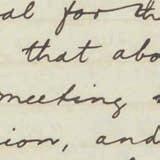 al for th
that abo
meeting
ion, and